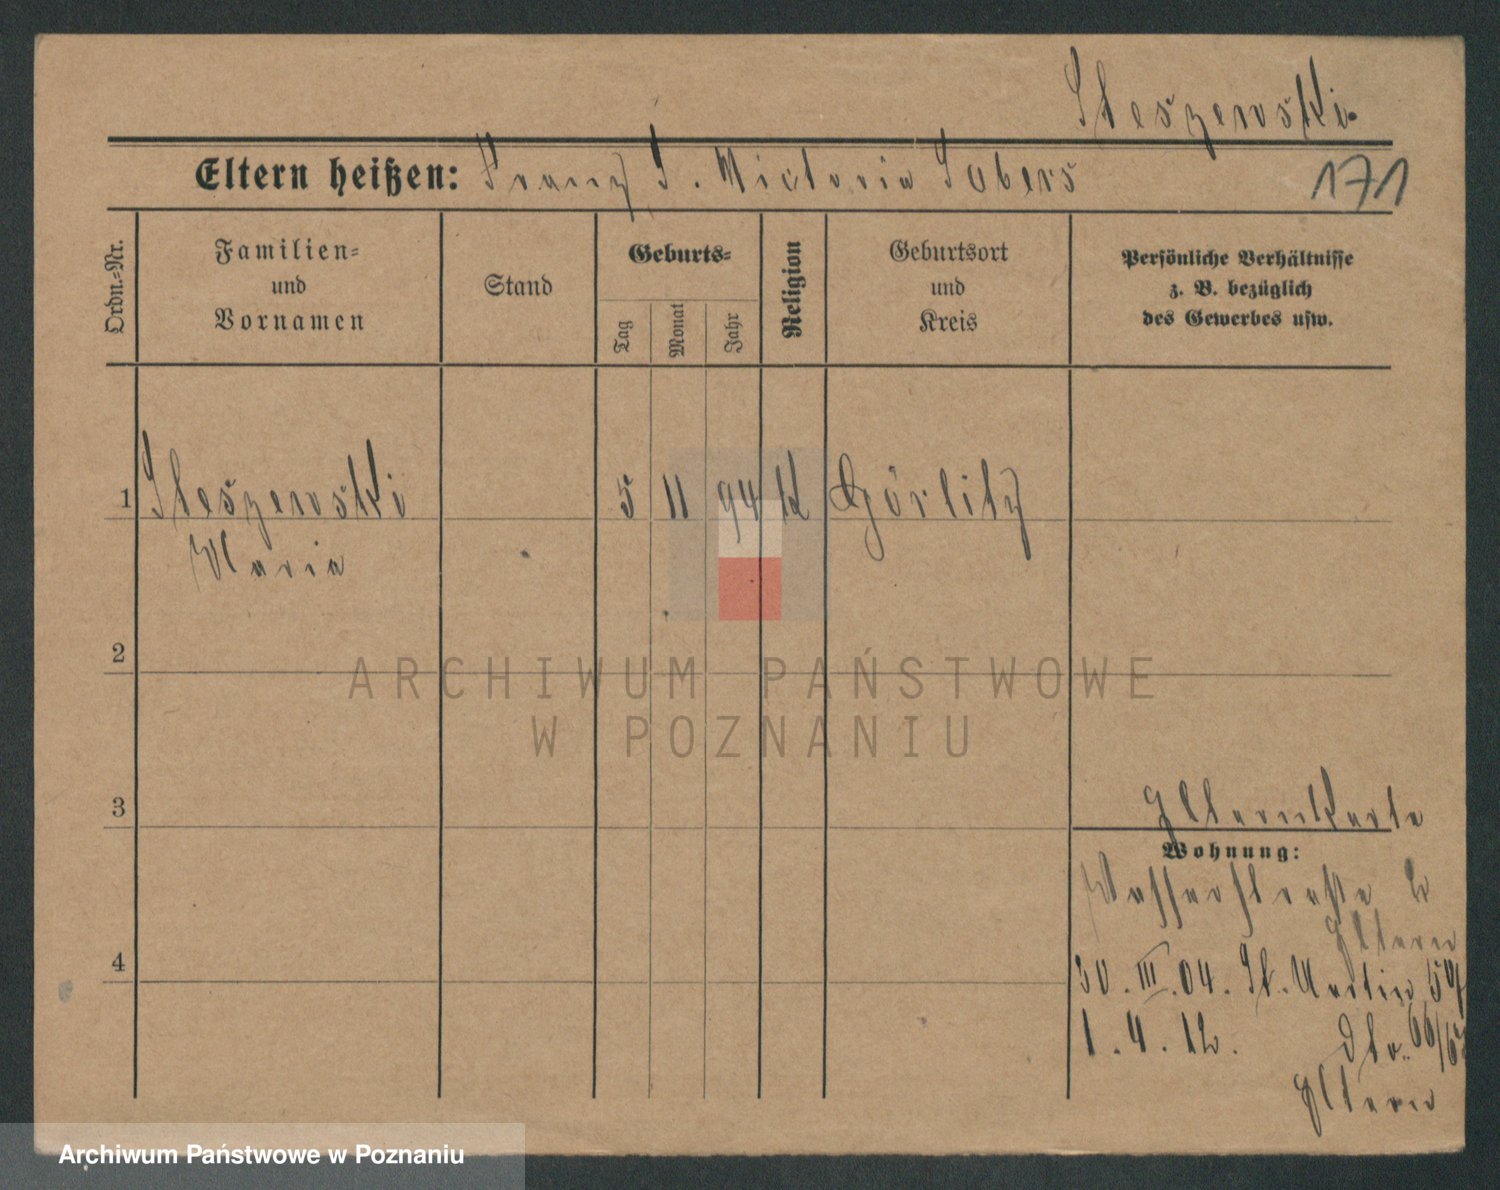 Steszewski
Eltern heißen: Franz S. Victoria Sobers
171
Ordn.=Nr.
Familien=
und
Vornamen
Stand
Geburts=
Tag
Monat
Jahr
Religion
Geburtsort
und
Kreis
Persönliche Verhältnisse
z. B. bezüglich
des Gewerbes usw.
1 Steszewski 5 11 94 K Görlitz
Maria
2
ARCHIWUM PAŃSTWOWE
W POZNANIU
3
Elternkarte
Wohnung:
Wasserstraße 2
Eltern
4
30. III. 04. St. Martin
1. 4. 12. dto. 66/67
Eltern
Archiwum Państwowe w Poznaniu